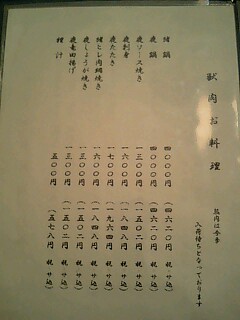 獣肉お料理
熊肉は今季
入荷待ちとなっております
猪鍋 四〇〇〇円 (四六二〇円 税サ込)
鹿鍋 四〇〇〇円 (四六二〇円 税サ込)
鹿ソース焼き 一三〇〇円 (一五〇二円 税サ込)
鹿刺身 一六〇〇円 (一八四八円 税サ込)
鹿たたき 一七〇〇円 (一九六四円 税サ込)
猪ヒレ肉網焼き 一六〇〇円 (一八四八円 税サ込)
鹿しょうが焼き 一三〇〇円 (一五〇二円 税サ込)
鹿竜田揚げ 一三〇〇円 (一五〇二円 税サ込)
猪汁 五〇〇円 (五七八円 税サ込)